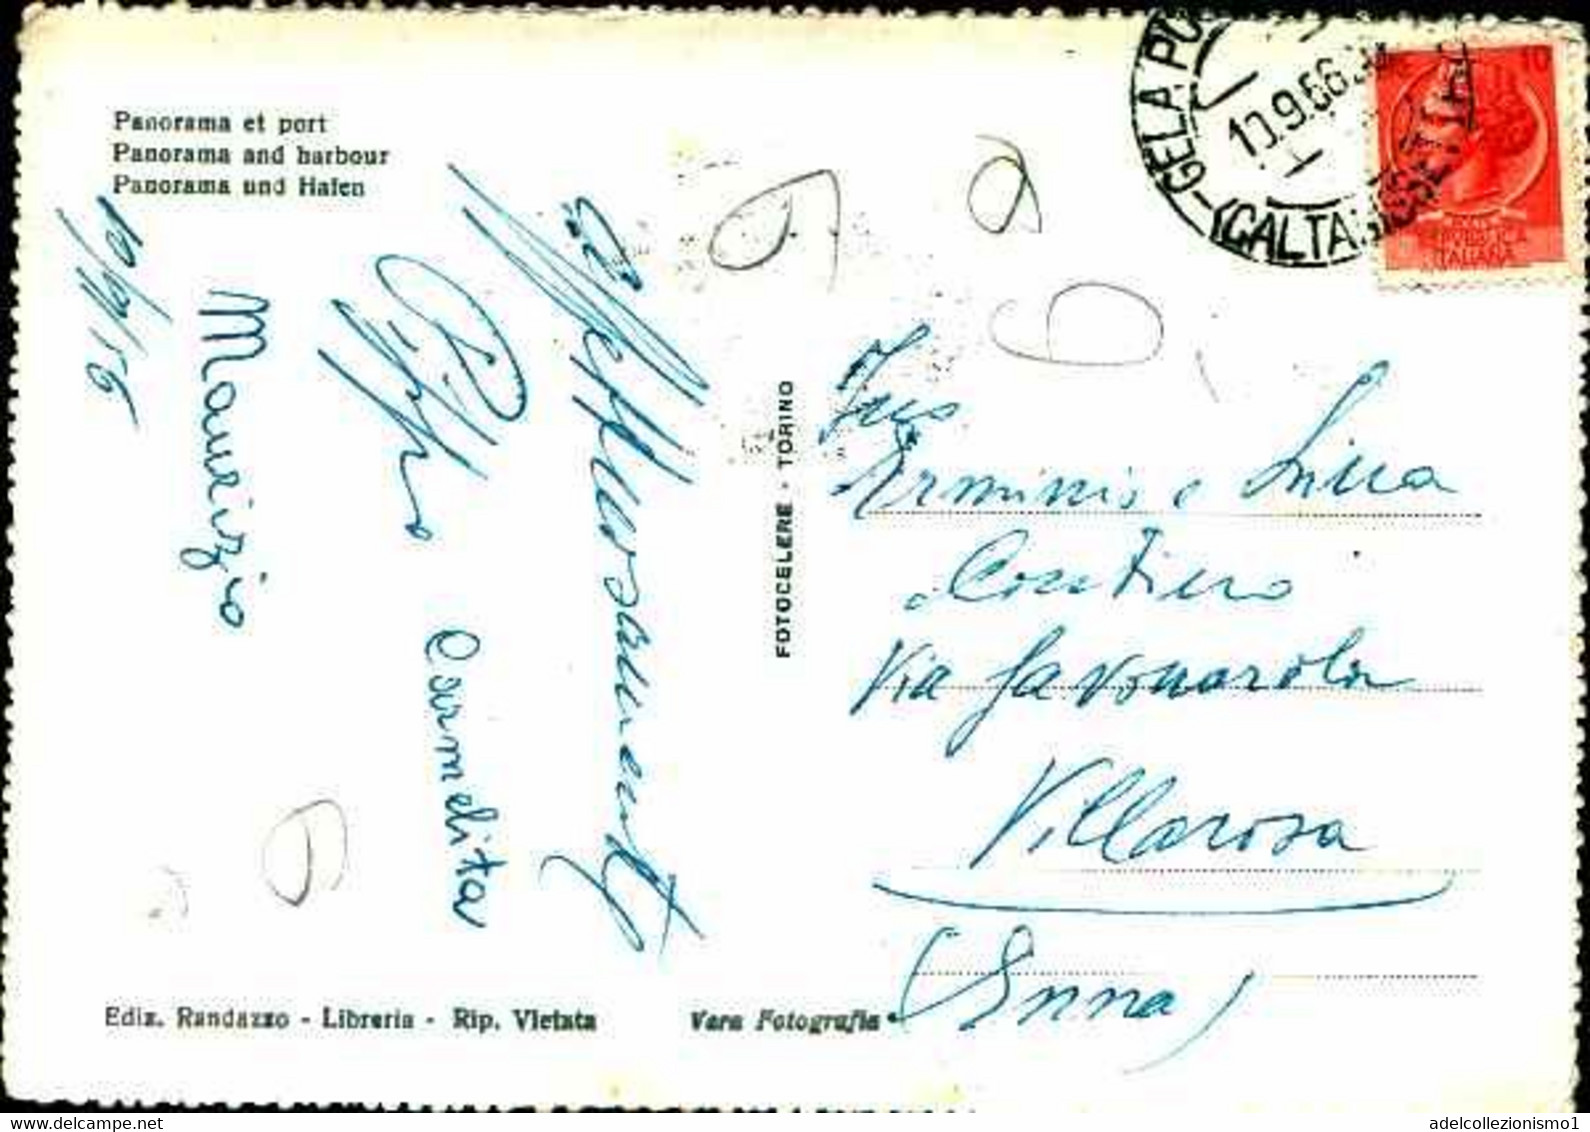 Panorama et port
Panorama and harbour
Panorama und Hafen
10/9/56
Maurizio
Pippo
Carmelita
Affettuosamente
Ediz. Randazzo - Libreria - Rip. Vietata
Vera Fotografia
FOTOCELERE - TORINO
GELA
10.9.56
(CALTANISSETTA)
10
REPUBBLICA
ITALIANA
e Lina
Via Savonarola
Villarosa
(Enna)
adelcollezionismo1